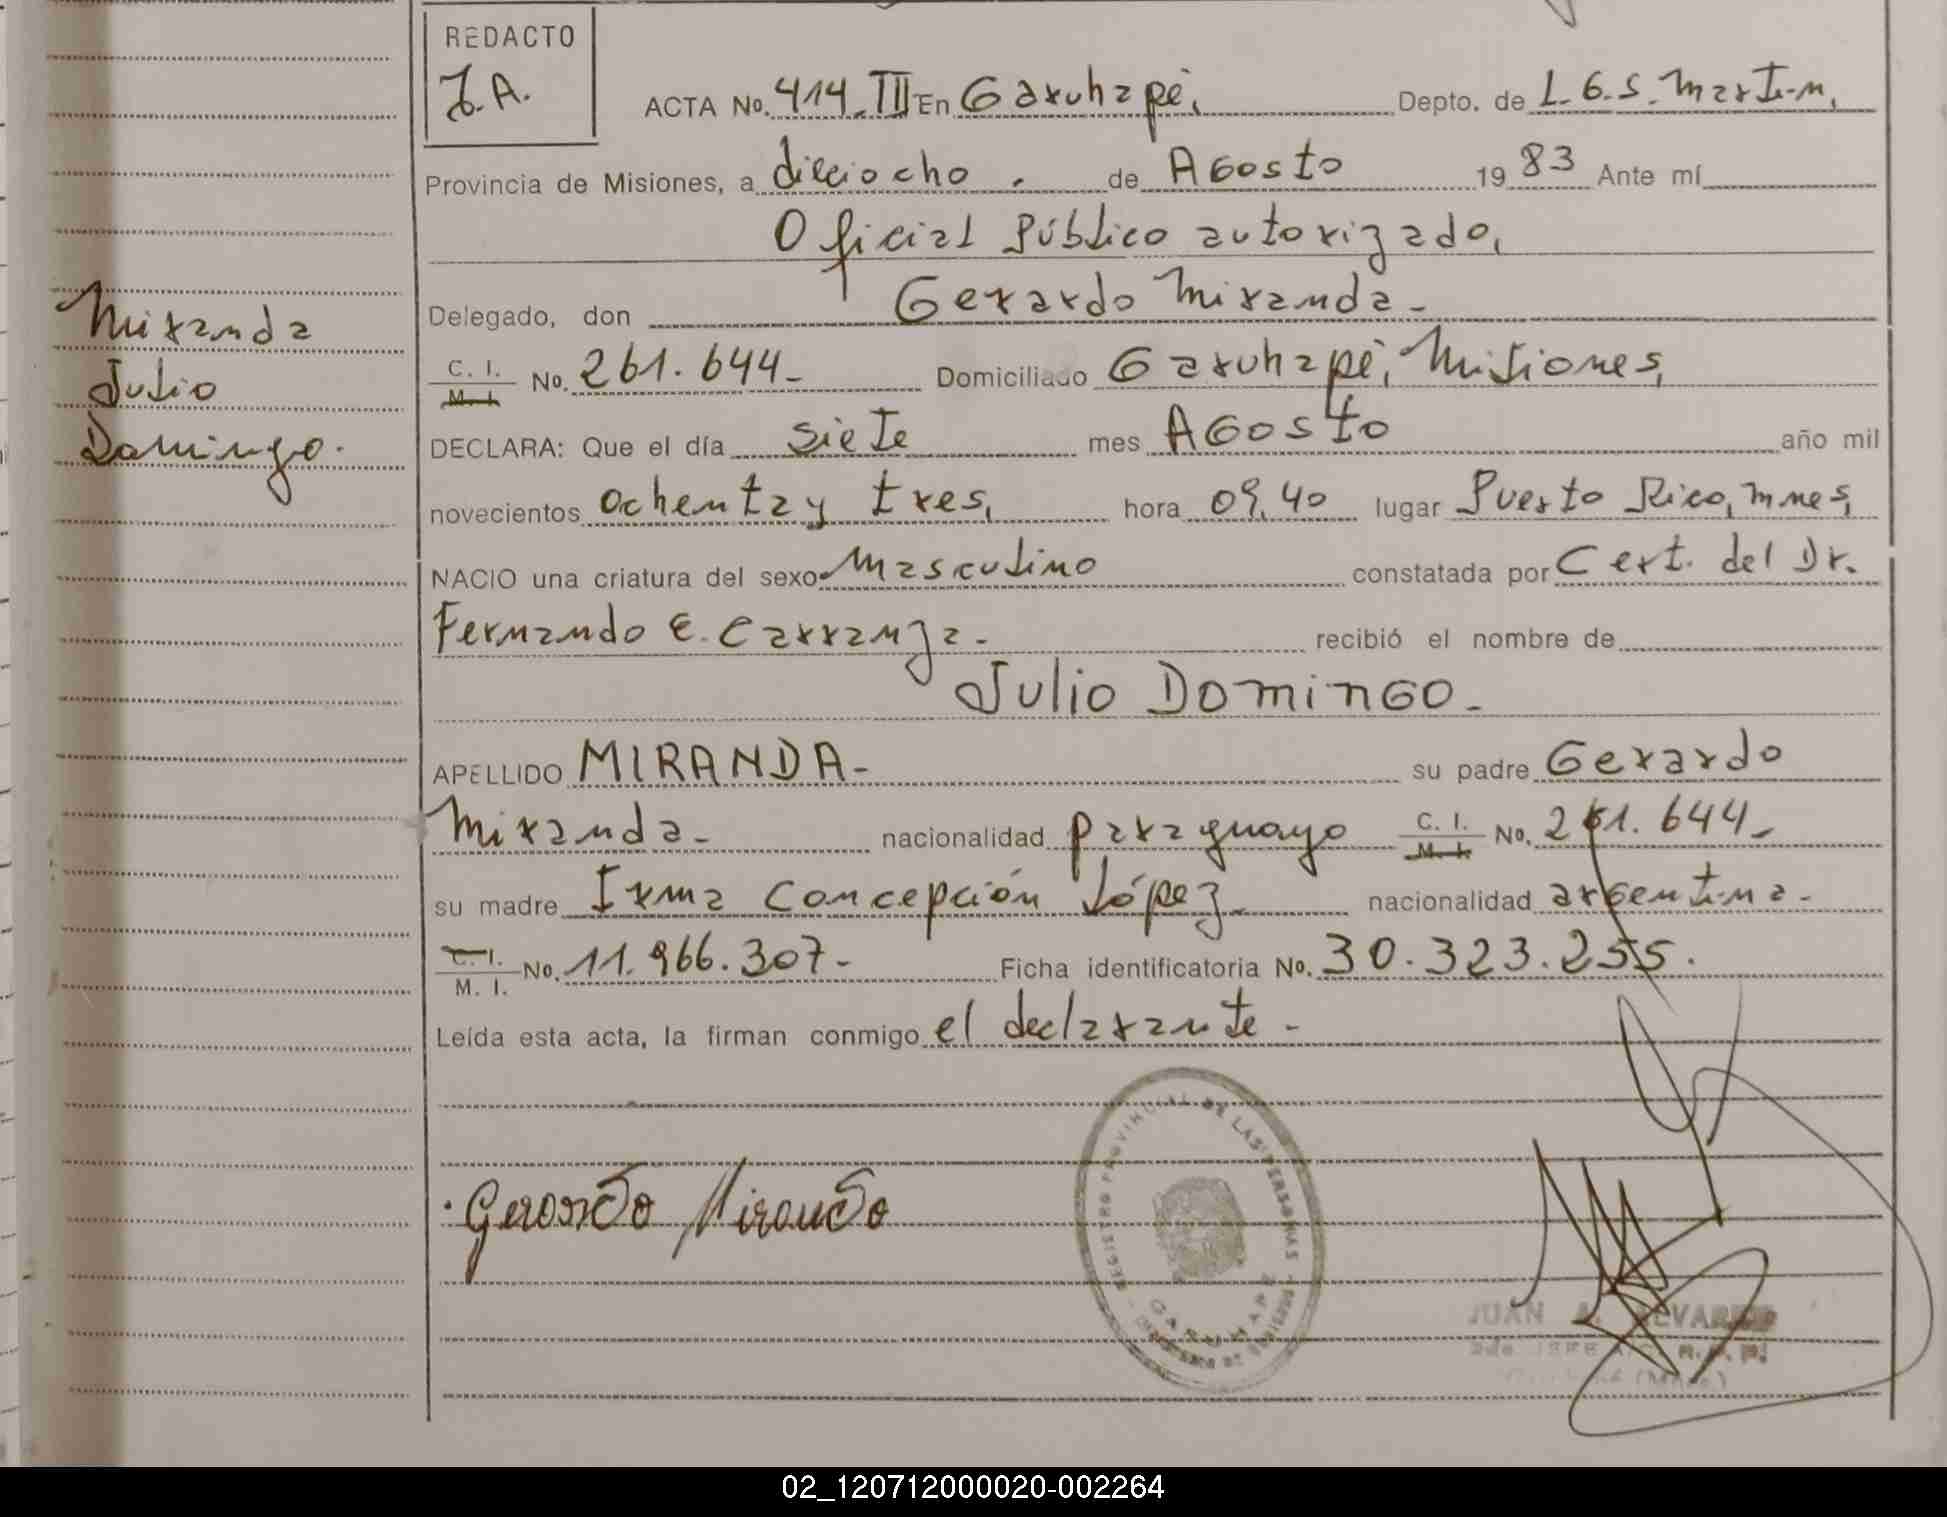 REDACTO
J. A.
ACTA No. 414. III En Garuhapé, Depto. de L. G. S. Martin,
Provincia de Misiones, a dieciocho . de Agosto 1983 Ante mí
Oficial Público autorizado,
Delegado, don Gerardo Miranda-
C. I. M. I. No. 261.644- Domiciliado Garuhapé, Misiones,
DECLARA: Que el día siete mes Agosto año mil
novecientos ochenta y tres, hora 09,40 lugar Puerto Rico, mnes,
NACIO una criatura del sexo masculino constatada por Cert. del Dr.
Fernando E. Carranza- recibió el nombre de
Julio Domingo-
APELLIDO MIRANDA- su padre Gerardo
Miranda- nacionalidad paraguayo C. I. M. I. No. 261.644-
su madre Irma Concepción López- nacionalidad argentina-
C. I. M. I. No. 11.966.307- Ficha identificatoria No. 30.323.255.
Leída esta acta, la firman conmigo el declarante-
Miranda
Julio
Domingo.
Gerardo Miranda
REGISTRO PROVINCIAL DE LAS PERSONAS
GARUHAPE
JUAN A. ALVAREZ
02_120712000020-002264